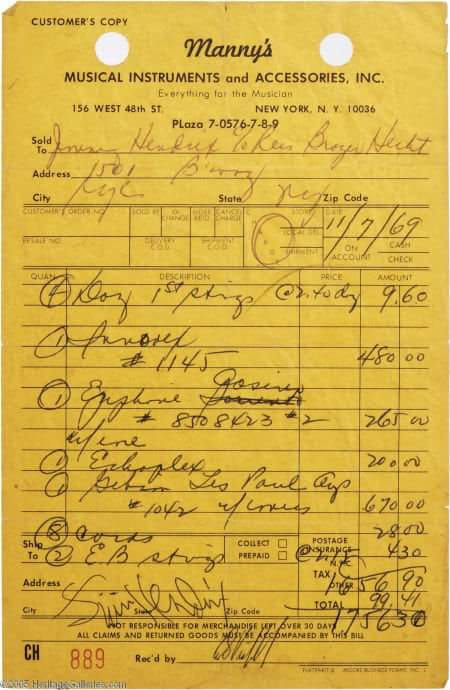 CUSTOMER'S COPY
Manny's
MUSICAL INSTRUMENTS and ACCESSORIES, INC.
Everything for the Musician
156 WEST 48th ST. NEW YORK, N. Y. 10036
PLaza 7-0576-7-8-9
Sold To Hendrix
Address 1501 B'way
City State Zip Code
CUSTOMER'S ORDER NO. SOLD BY EX-CHANGE MDSE. RET'D CANCEL CHARGE DATE 11/7/69
RESALE NO. DELIVERY C.O.D. SHIPMENT C.O.D. SHIPMENT ON ACCOUNT CASH CHECK
QUAN. DESCRIPTION PRICE AMOUNT
4 Doz 1st stings 9.60
1
# 1145 480 00
1 Epiphone
# 8508423 #2 265 00
1 Echoplex 200 00
1 Les Paul
# 1042 670 00
8 Cords 28 00
Ship To 2 E.B stings COLLECT PREPAID POSTAGE INSURANCE 4 30
Address TAX 1656 90
OTHER 99 41
City State Zip Code TOTAL 1756 30
NOT RESPONSIBLE FOR MERCHANDISE LEFT OVER 30 DAYS
ALL CLAIMS AND RETURNED GOODS MUST BE ACCOMPANIED BY THIS BILL
CH 889 Rec'd by
MOORE BUSINESS FORMS, INC.
©2005 HeritageGalleries.com